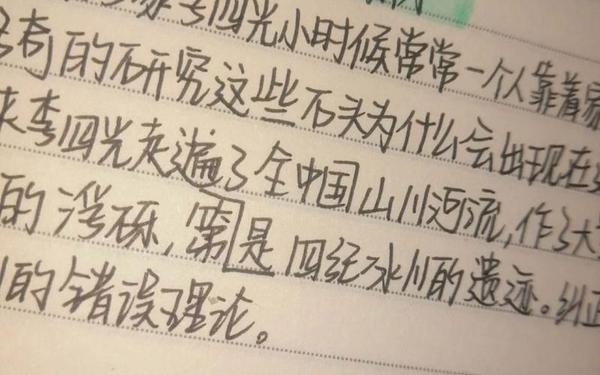 李四光小时候常常一个人靠着家
奇的研究这些石头为什么会出现在
来李四光走遍了全中国山川河流,作了大
的漂砾,第是四纪冰川的遗迹。纠正
的错误理论。